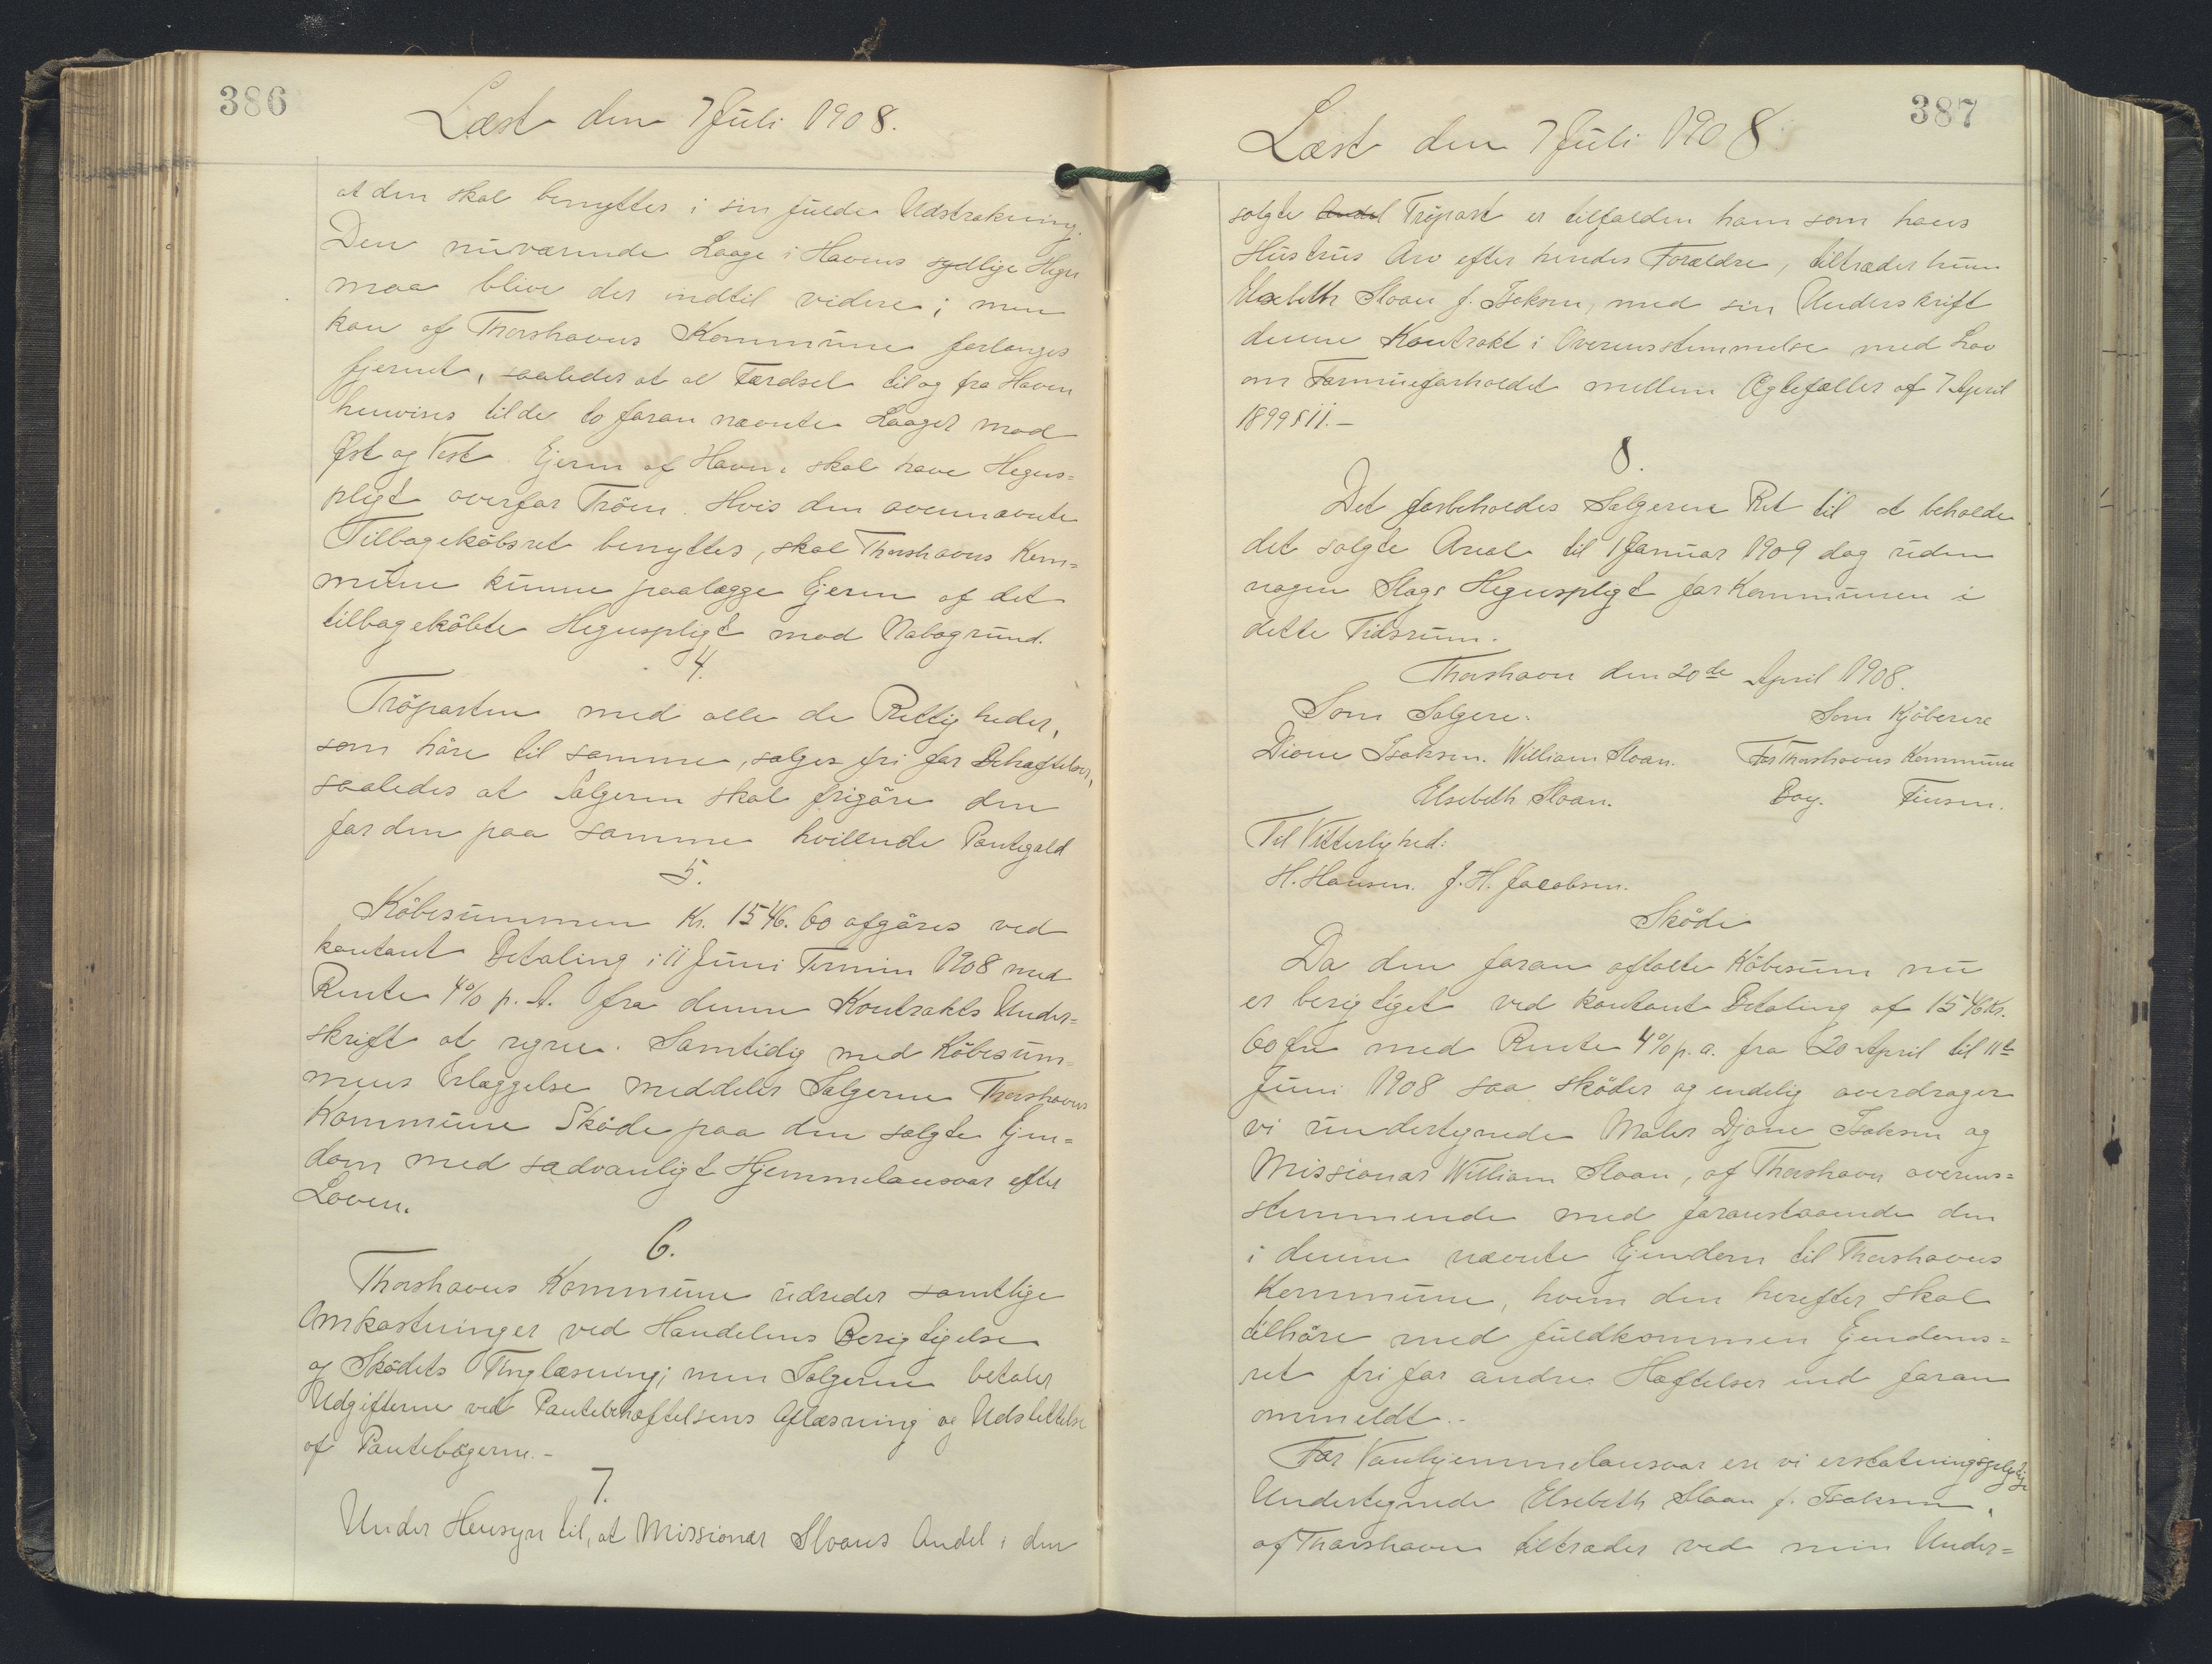 386
Læst den 7 Juli 1908.
at den skal benyttes i sin fulde Udstrækning.
Den nuværende Laage i Havens sydlige Hegn
maa blive der indtil videre; men
kan af Thorshavns Kommune forlanges
fjernet, saaledes at al Færdsel til og fra Haven
henvises til de to foran nævnte Laager mod
Øst og Vest. Ejeren af Haven skal have Hegns=
pligt overfor Tröen. Hvis den ovennævnte
Tilbagekøbsret benyttes, skal Thorshavns Kom=
mune kunne paalægge Ejeren af det
tilbagekøbte Hegnspligt mod Nabogrund.
4.
Tröparten med alle de Rettigheder,
som høre til samme, sælges fri for Behæftelser,
saaledes at Sælgeren skal frigöre den
for den paa samme hvillende Pantegæld
5.
Köbesummen Kr. 1546.60 afgöres ved
kontant Betaling i 11 Juni Termin 1908 med
Rente 4% p. A. fra denne Kontrakts Under=
skrift at regne. Samtidig med Köbesum=
mens Erlæggelse meddeler Sælgerne Thorshavns
Kommune Sköde paa den solgte Ejen=
dom med sædvanligt Hjemmelansvar efter
Loven.
6.
Thorshavns Kommune udreder samtlige
Omkostninger ved Handelens Berigtigelse
og Skødets Tinglæsning; men Sælgerne betaler
Udgifterne ved Pantebehæftelsens Aflæsning og Udslettelse
af Pantebøgerne.-
7.
Under Hensyn til, at Missionær Sloans Andel i den
387
Læst den 7 Juli 1908
solgte Andel Tröpart er tilfalden ham som hans
Hustrus Arv efter hendes Forældre, tiltræder hun
Elsebeth Sloan f. Isaksen, med sin Underskrift
denne Kontrakt i Overensstemmelse med Lov
om Formueforholdet mellem Ægtefæller af 7 April
1899 § 11.-
8.
Det forbeholdes Sælgerne Ret til at beholde
det solgte Areal til 1 Januar 1909 dog uden
nogen Slags Hegnspligt for Kommunen i
dette Tidsrum.
Thorshavn den 20de April 1908.
Som Sælgere: Som Kjöberere
Dione Isaksen. William Sloan. For Thorshavns Kommune
Elsebeth Sloan. Boy. Finsen.
Til Vitterlighed:
H. Hansen. J. H. Jacobsen.
Sköde
Da den foran aftalte Köbesum nu
er berigtiget ved kontant Betaling af 1546 Kr.
60 Øre med Rente 4% p.a. fra 20 April til 11te
Juni 1908 saa sköder og endelig overdrager
vi undertegnede Maler Djone Isaksen og
Missionær William Sloan, af Thorshavn overens=
stemmende med foranstaaende den
i denne nævnte Ejendom til Thorshavns
Kommune, hvem den herefter skal
tilhöre med fuldkommen Ejendoms=
ret fri for andre Hæftelser end foran
ommeldt.-
For Vanhjemmelansvar ere vi erstatningspligtige
Undertegnede Elsebeth Sloan f. Isaksen,
af Thorshavn tiltræder ved min Under=